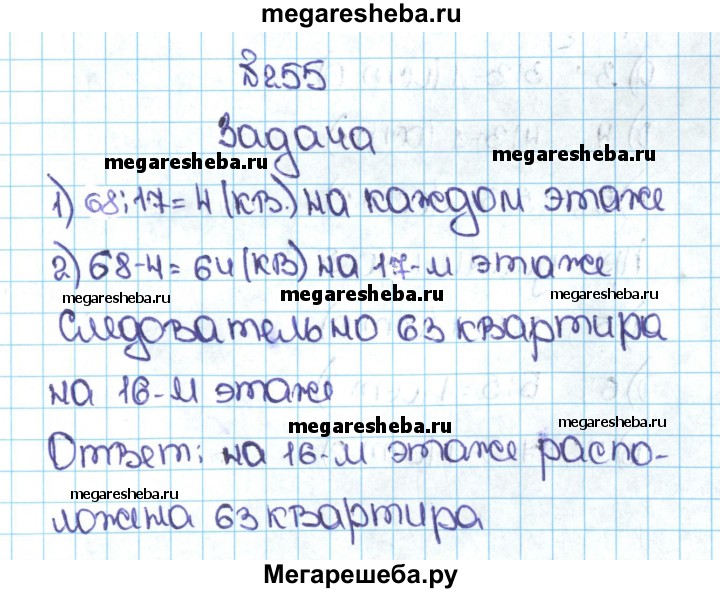 megaresheba.ru
№255
Задача
megaresheba.ru megaresheba.ru
1) 68:17=4 (кв.) на каждом этаже
2) 68-4=64 (кв) на 17-м этаже
megaresheba.ru megaresheba.ru megaresheba.ru
Следовательно 63 квартира
на 16-м этаже
megaresheba.ru megaresheba.ru
Ответ: на 16-м этаже распо-
megaresheba.ru
ложена 63 квартира
Мегарешеба.ру